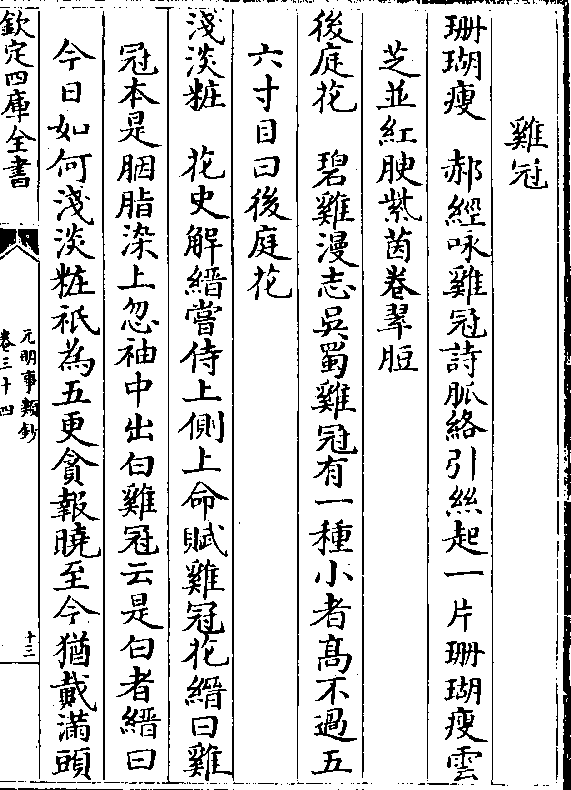 雞冠
珊瑚瘦　郝經咏雞冠詩脈絡引絲起一片珊瑚瘦雲
芝並紅腴紫茵卷翠脰
後庭花　碧雞漫志吳蜀雞冠有一種小者髙不過五
六寸目曰後庭花
淺淡粧　花史解縉嘗侍上側上命賦雞冠花縉曰雞
冠本是胭脂染上忽袖中出白雞冠云是白者縉曰
今日如何淺淡粧祇為五更貪報曉至今猶戴滿頭
欽定四庫全書
元明事類鈔
卷三十四
十三